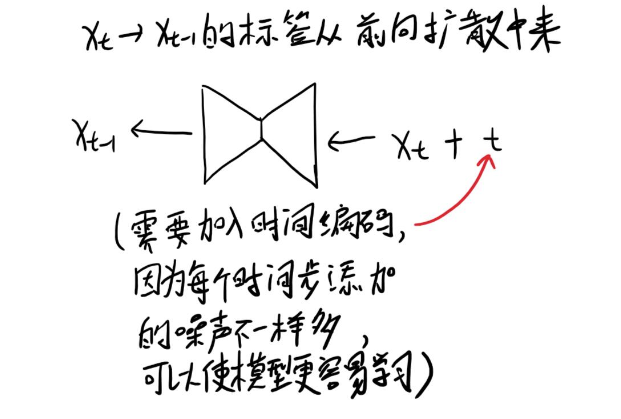 xt → xt-1的标签从前向扩散中来
xt-1 ← ← xt + t
(需要加入时间编码,
因为每个时间步添加
的噪声不一样多,
可以使模型更容易学习)